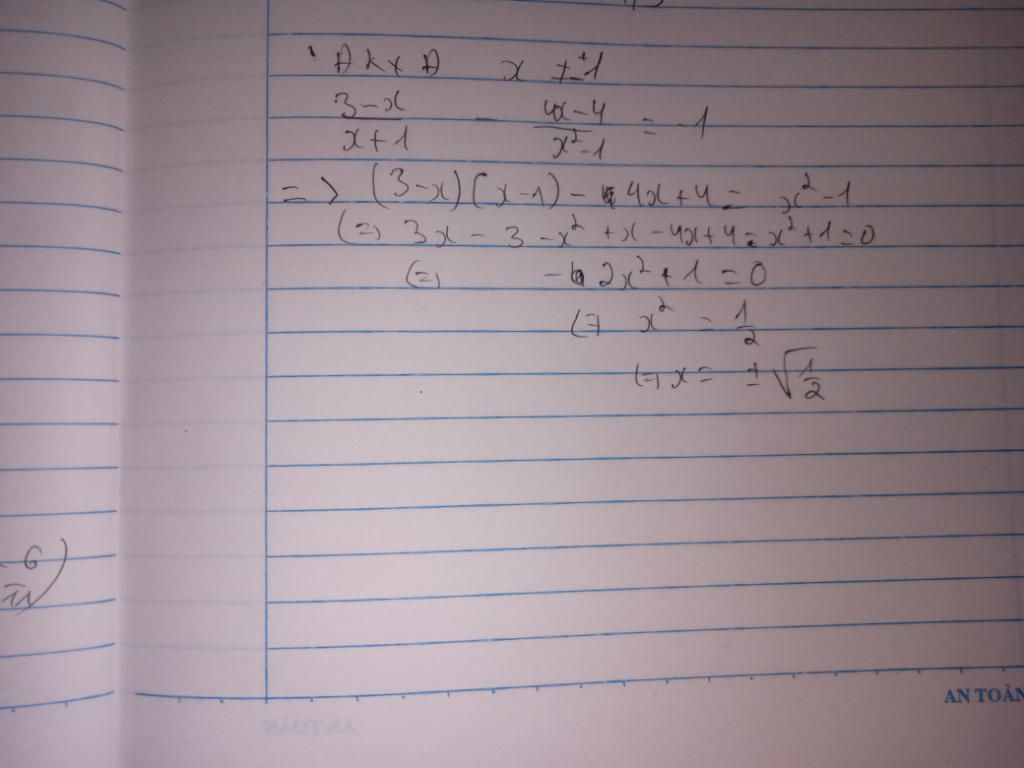 ĐKXĐ x ≠ ±1
\frac{3-x}{x+1} - \frac{4x-4}{x^2-1} = -1
=> (3-x)(x-1) - 4x+4 = x^2-1
(=) 3x - 3 - x^2 + x - 4x+4 - x^2+1 = 0
(=) -2x^2 + 1 = 0
(=) x^2 = \frac{1}{2}
(=) x = ± \sqrt{\frac{1}{2}}
6)
AN TOÀN